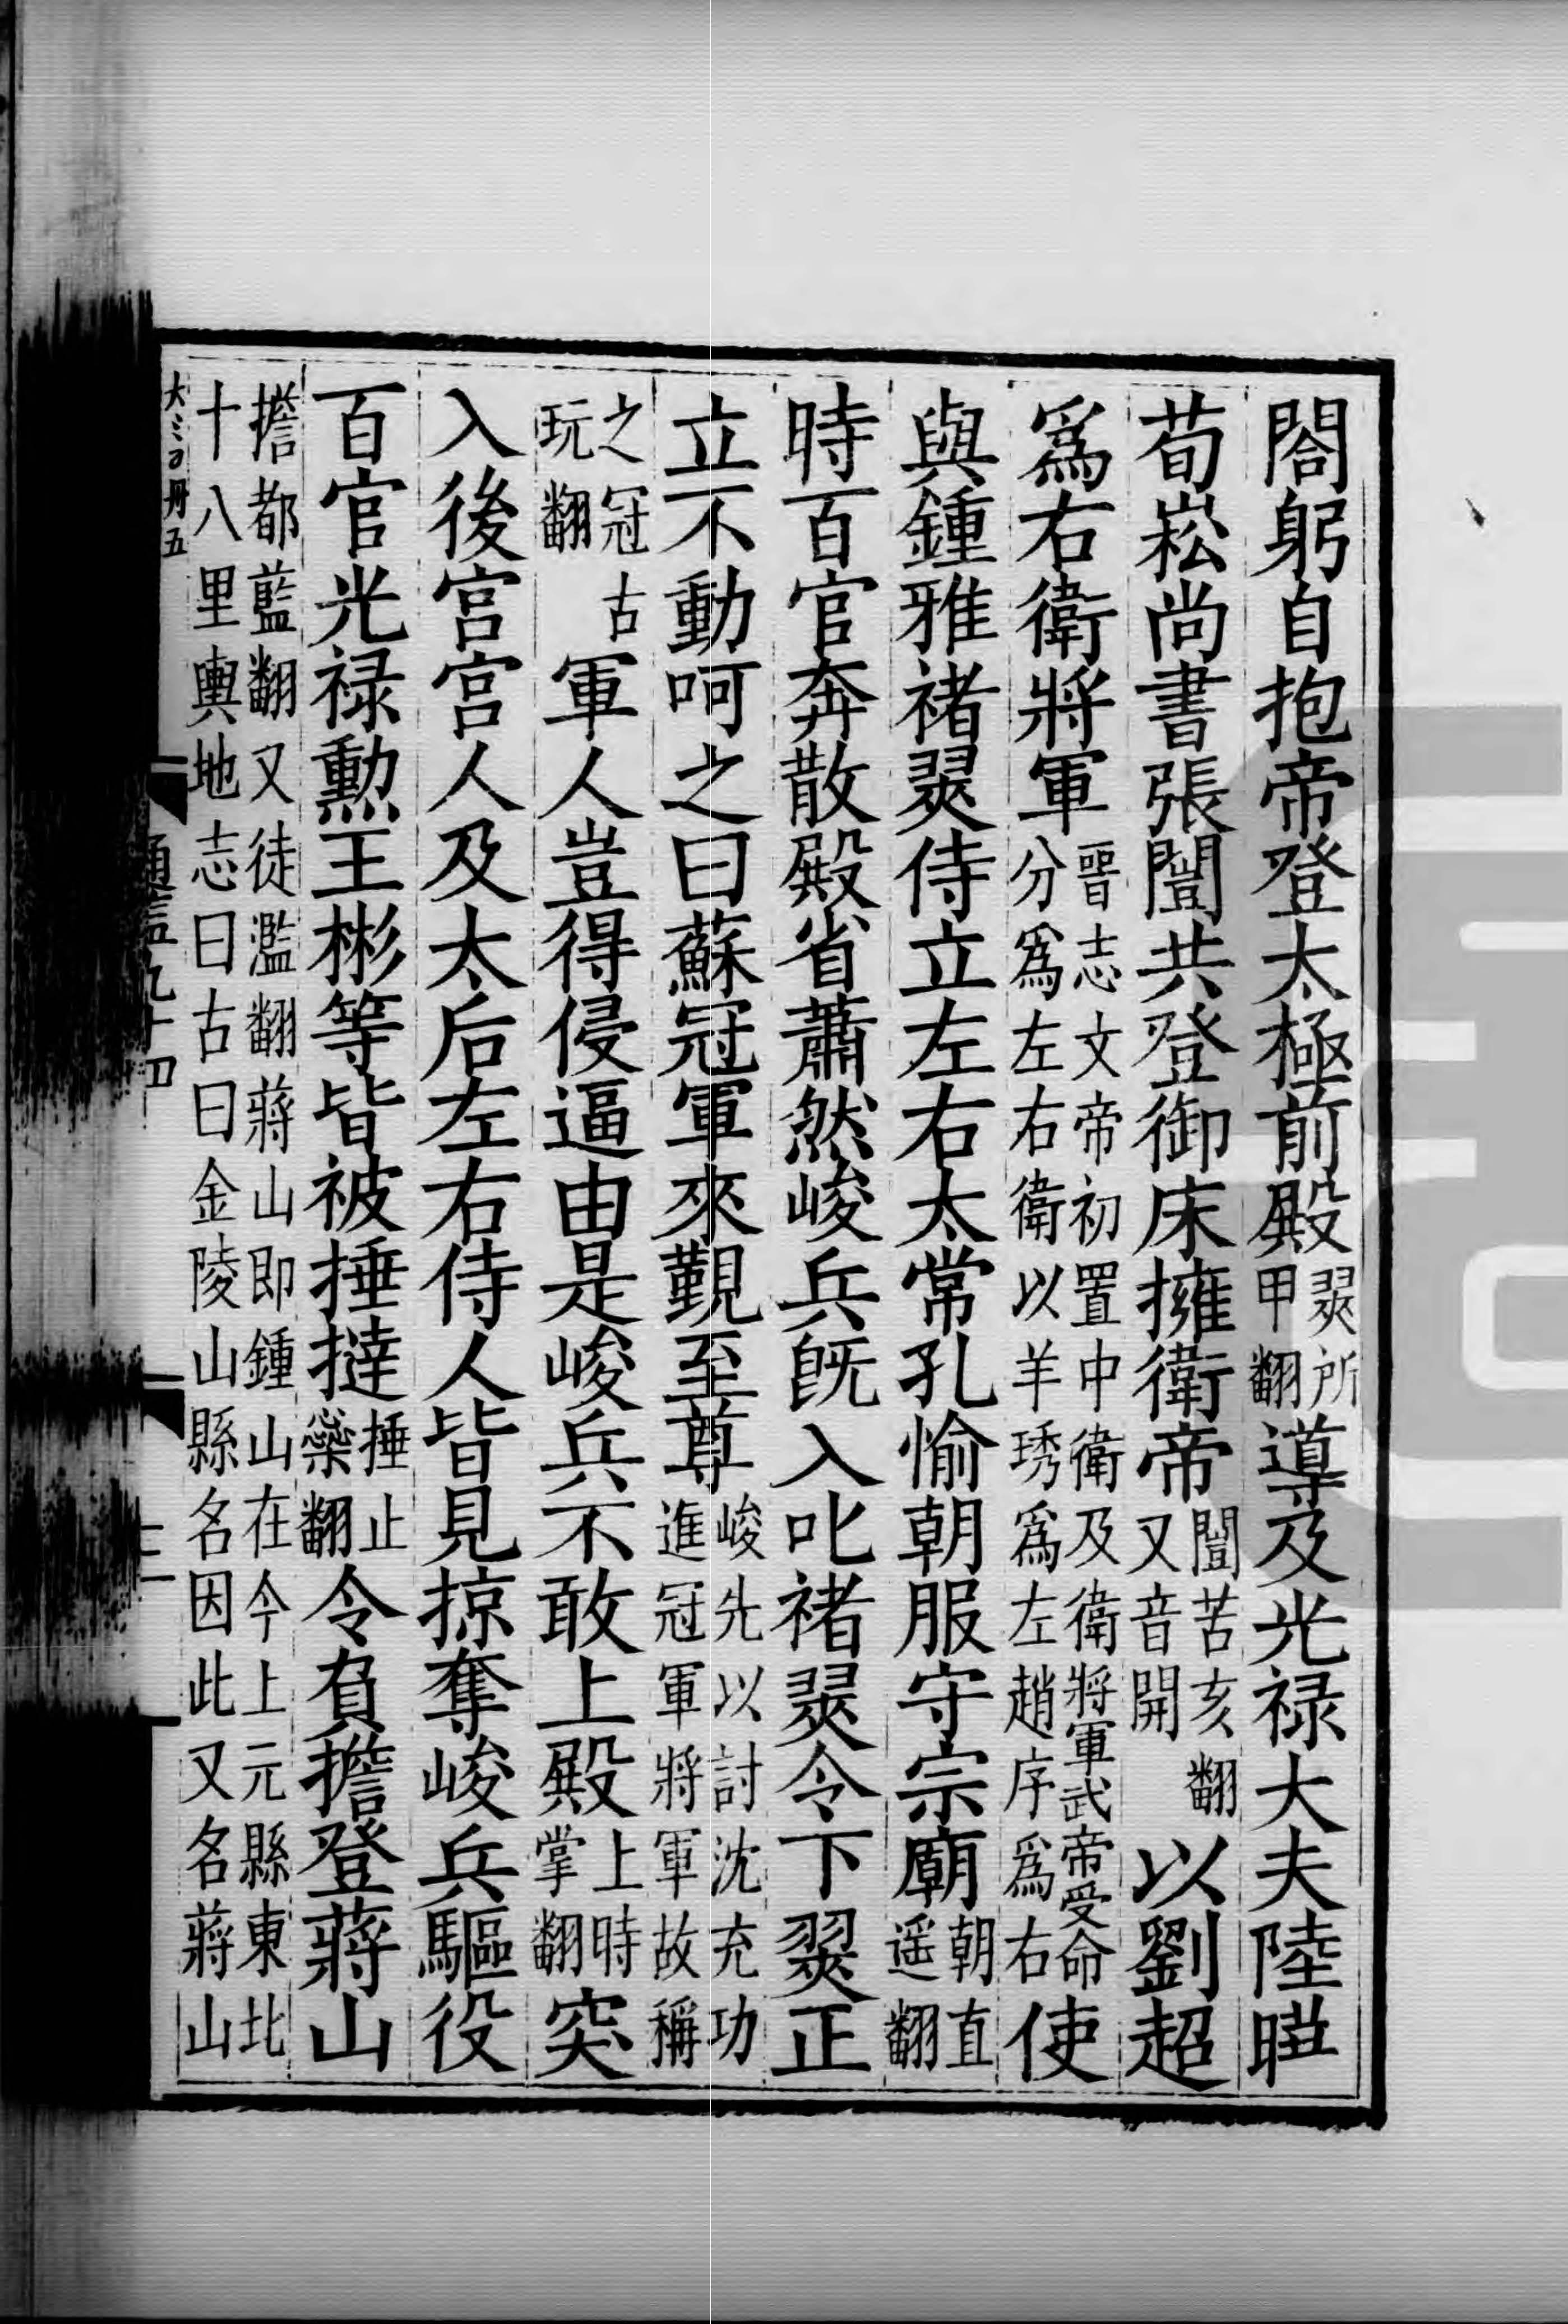 閤躬自抱帝登太極前殿翜所甲翻導及光禄大夫陸曄
荀崧尚書張闓共登御床擁衛帝闓苦亥翻又音開以劉超
爲右衛將軍晉志文帝初置中衛及衛將軍武帝受命分爲左右衛以羊琇爲左趙序爲右使
與鍾雅褚翜侍立左右太常孔愉朝服守宗廟朝直遥翻
時百官奔散殿省蕭然峻兵既入叱褚翜令下翜正
立不動呵之曰蘇冠軍來覲至尊峻先以討沈充功進冠軍將軍故稱
之冠古玩翻軍人豈得侵逼由是峻兵不敢上殿上時掌翻突
入後宮宮人及太后左右侍人皆見掠奪峻兵驅役
百官光禄勳王彬等皆被捶撻捶止橤翻令負擔登蔣山
擔都藍翻又徒濫翻蔣山即鍾山在今上元縣東北十八里輿地志曰古曰金陵山縣名因此又名蔣山